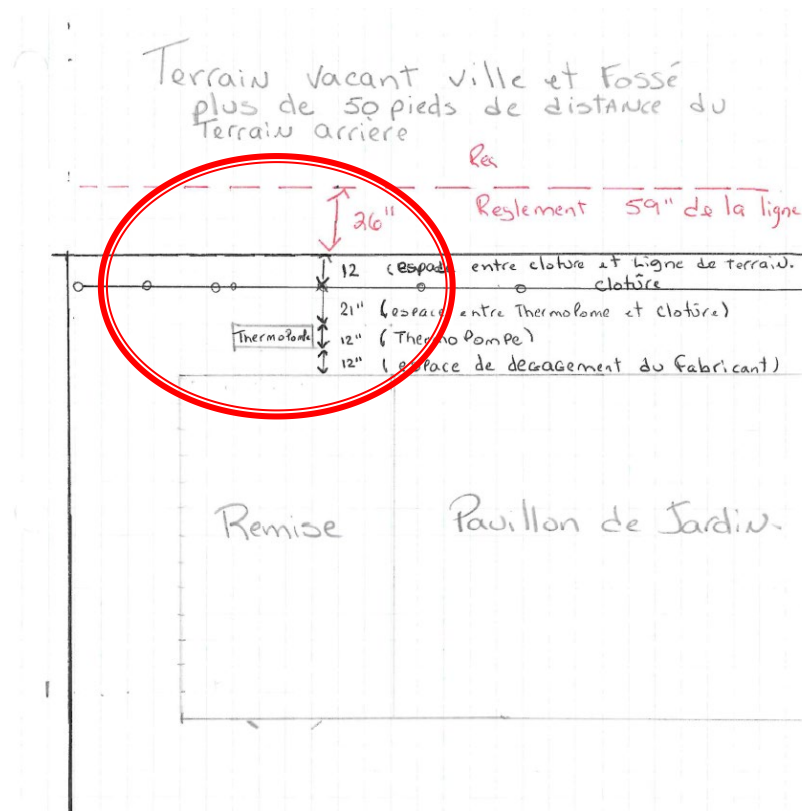 Terrain vacant ville et Fossé
plus de 50 pieds de distance du
Terrain arrière
Reg
Reglement 59" de la ligne
26"
12 (espace entre cloture et Ligne de terrain.
clotûre
21" (espace entre Thermopome et clotûre)
Thermopome
12" (Thermo Pompe)
12" (espace de degagement du fabricant)
Remise
Pavillon de Jardin.